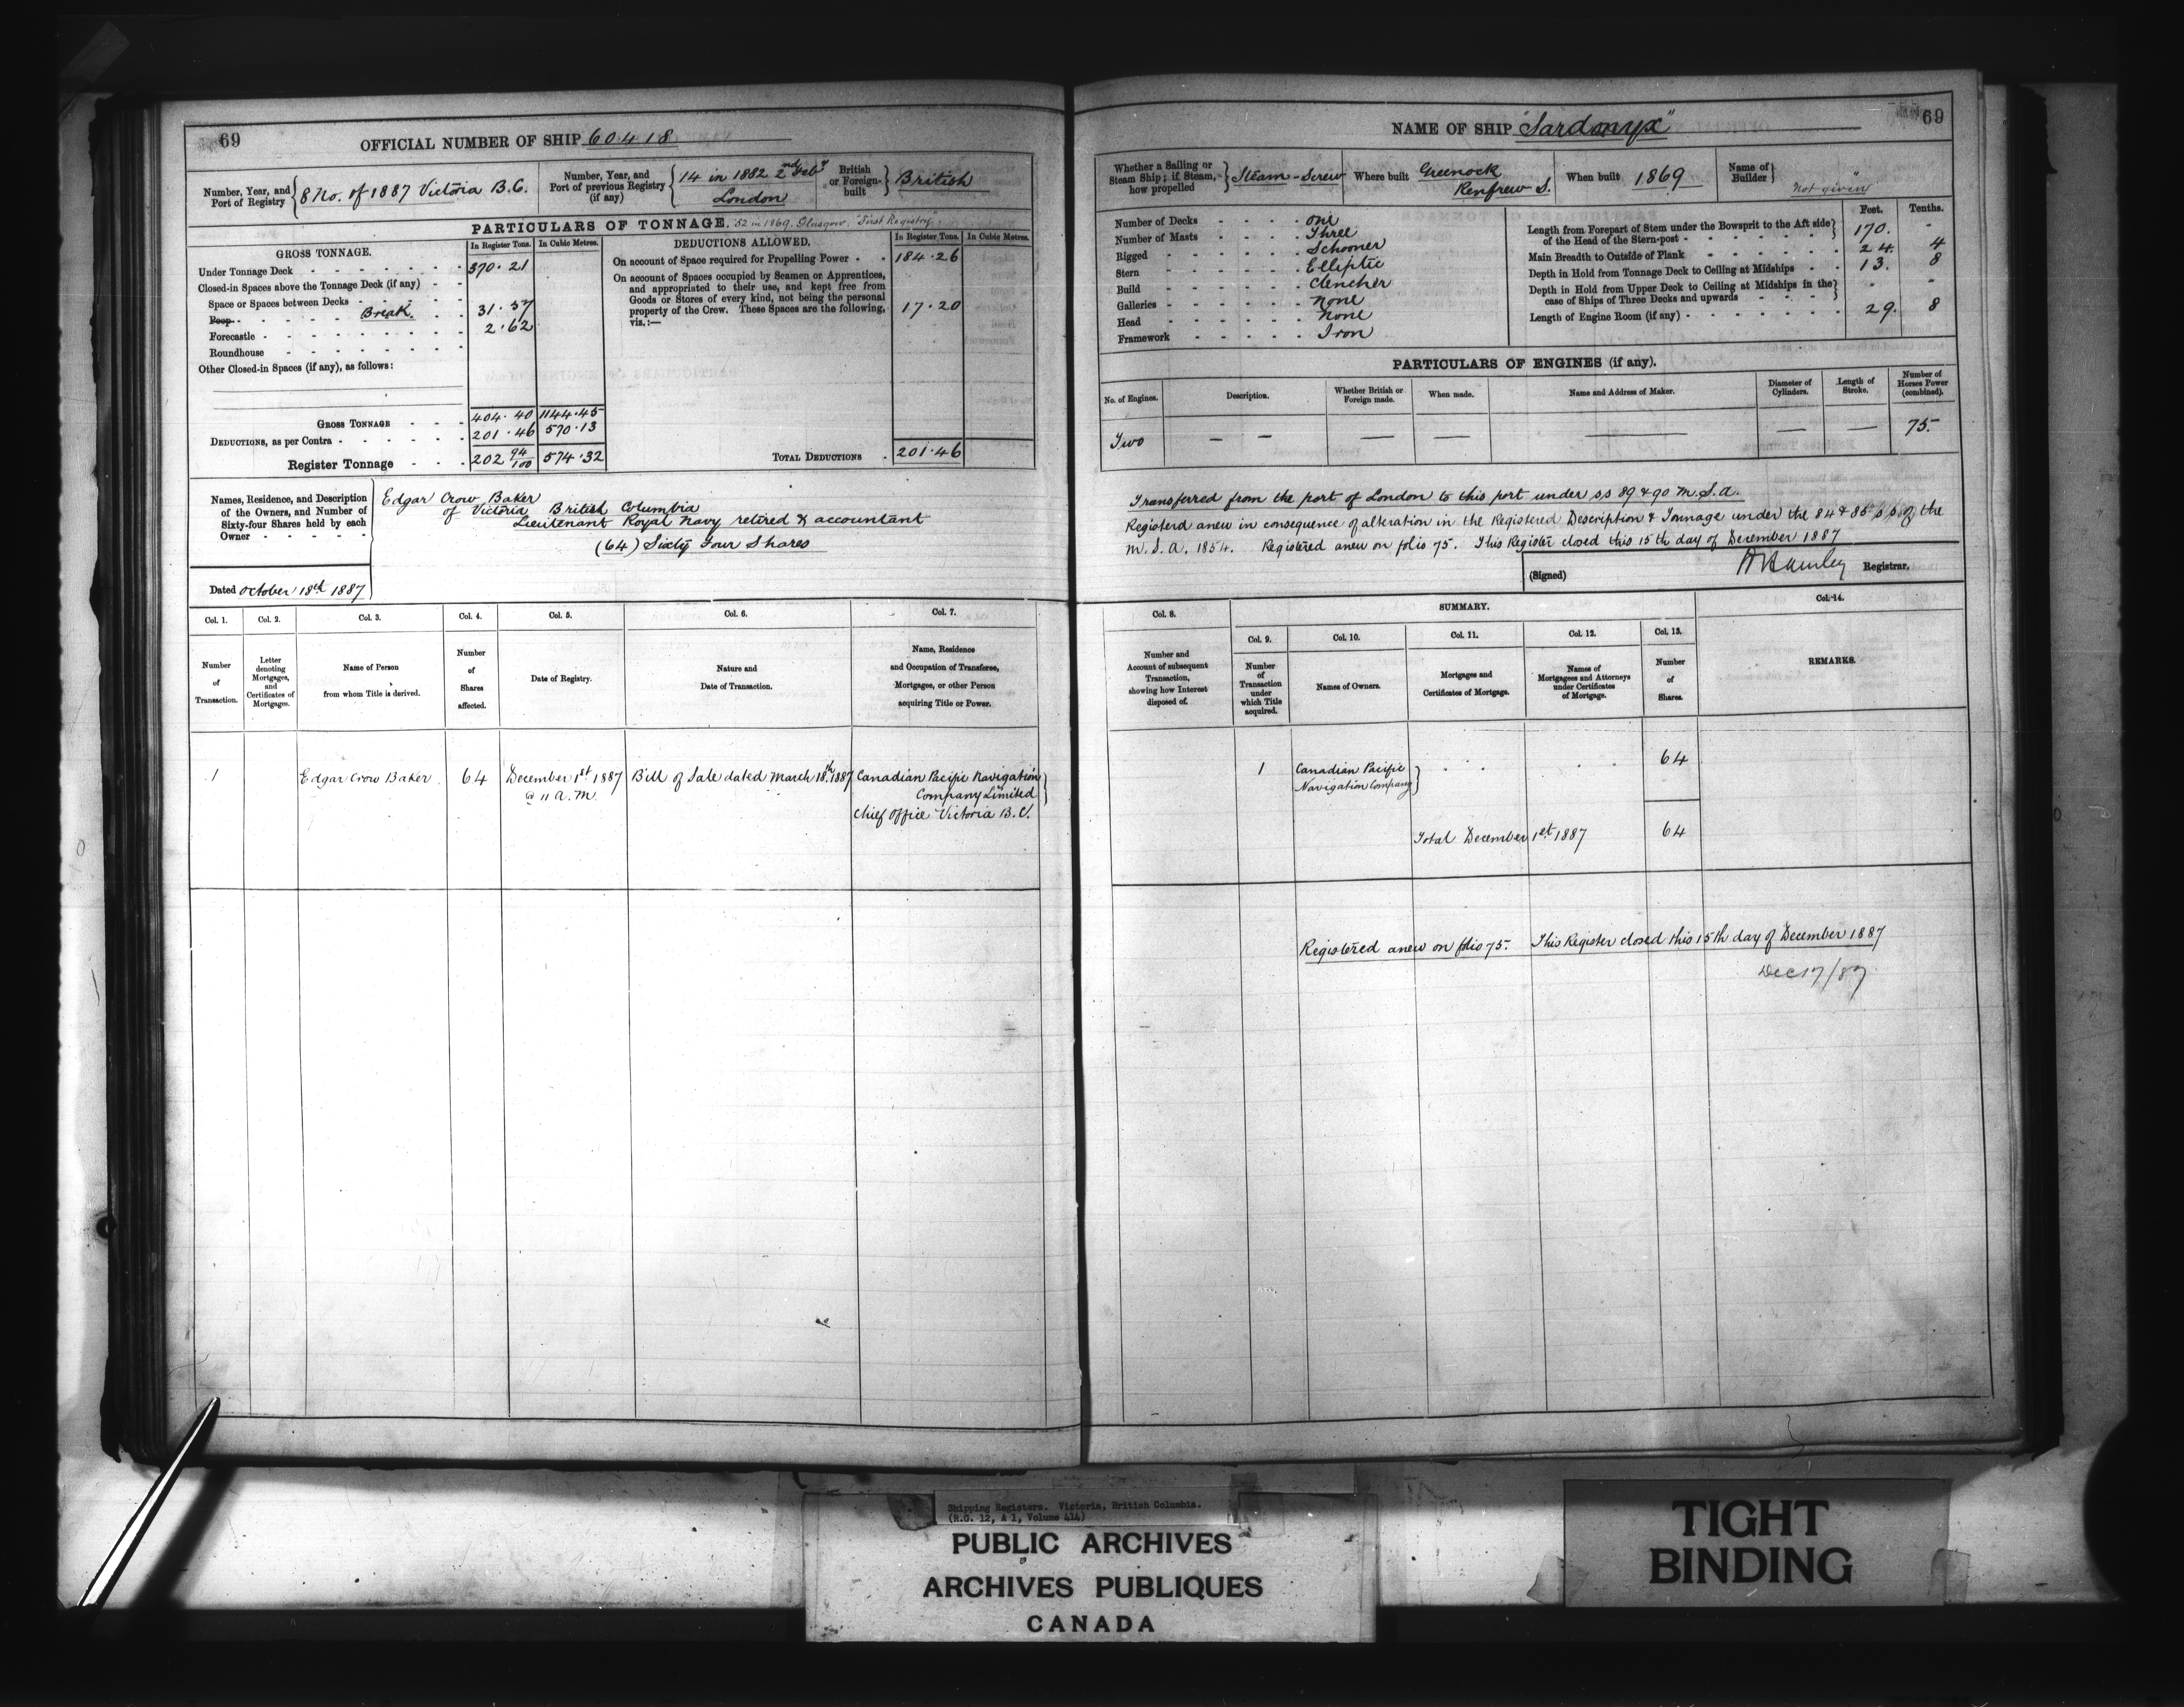 69
OFFICIAL NUMBER OF SHIP 60418
Number, Year, and Port of Registry { 8 No. of 1887 Victoria B.C.
Number, Year, and Port of previous Registry (if any) { 14 in 1882 2nd Feby London
British or Foreign-built } British
PARTICULARS OF TONNAGE. 52 in 1869. Glasgow. "First Registry"
GROSS TONNAGE.
In Register Tons. In Cubic Metres.
Under Tonnage Deck 370.21
Closed-in Spaces above the Tonnage Deck (if any)
Space or Spaces between Decks
Poop Break 31.57
Forecastle 2.62
Roundhouse
Other Closed-in Spaces (if any), as follows:
GROSS TONNAGE 404.40 1144.45
DEDUCTIONS, as per Contra 201.46 570.13
Register Tonnage 202 94/100 574.32
DEDUCTIONS ALLOWED.
In Register Tons. In Cubic Metres.
On account of Space required for Propelling Power 184.26
On account of Spaces occupied by Seamen or Apprentices,
and appropriated to their use, and kept free from
Goods or Stores of every kind, not being the personal
property of the Crew. These Spaces are the following, 17.20
viz.:—
TOTAL DEDUCTIONS 201.46
Names, Residence, and Description
of the Owners, and Number of
Sixty-four Shares held by each
Owner
Edgar Crow Baker
of Victoria British Columbia
Lieutenant Royal Navy retired & accountant
(64) Sixty Four Shares
Dated October 18th 1887
Col. 1. Col. 2. Col. 3. Col. 4. Col. 5. Col. 6. Col. 7.
Number of Transaction.
Letter denoting Mortgages, and Certificates of Mortgages.
Name of Person from whom Title is derived.
Number of Shares affected.
Date of Registry.
Nature and Date of Transaction.
Name, Residence and Occupation of Transferee, Mortgagee, or other Person acquiring Title or Power.
1 Edgar Crow Baker. 64 December 1st 1887 Bill of Sale dated March 18th 1887 Canadian Pacific Navigation
@ 11 A.M. Company Limited
Chief Office Victoria B.C.
69
NAME OF SHIP "Sardonyx"
Whether a Sailing or Steam Ship; if Steam, how propelled } Steam - Screw
Where built Greenock Renfrew S.
When built 1869
Name of Builder } "Not given"
Number of Decks One
Number of Masts Three
Rigged Schooner
Stern Elliptic
Build Clencher
Galleries None
Head None
Framework Iron
Feet. Tenths.
Length from Forepart of Stem under the Bowsprit to the Aft side
of the Head of the Stern-post } 170. -
Main Breadth to Outside of Plank 24. 4
Depth in Hold from Tonnage Deck to Ceiling at Midships 13. 8
Depth in Hold from Upper Deck to Ceiling at Midships in the
case of Ships of Three Decks and upwards } - -
Length of Engine Room (if any) 29. 8
PARTICULARS OF ENGINES (if any).
No. of Engines. Description. Whether British or Foreign made. When made. Name and Address of Maker. Diameter of Cylinders. Length of Stroke. Number of Horses Power (combined).
Two — — — — — — — 75.
Transferred from the port of London to this port under ss 89 & 90 M.S.A.
Registerd anew in consequence of alteration in the Registered Description & Tonnage under the 84 & 85 of the
M.S.A. 1854. Registered anew on folio 75. This Register closed this 15th day of December 1887
(Signed) Hamley Registrar.
Col. 8. SUMMARY. Col. 14.
Col. 9. Col. 10. Col. 11. Col. 12. Col. 13.
Number and Account of subsequent Transaction, showing how Interest disposed of.
Number of Transaction under which Title acquired.
Names of Owners.
Mortgages and Certificates of Mortgage.
Names of Mortgagees and Attorneys under Certificates of Mortgage.
Number of Shares.
REMARKS.
1 Canadian Pacific 64
Navigation Company
Total December 1st 1887 64
Registered anew on folio 75. This Register closed this 15th day of December 1887
Dec 17/87
Shipping Registers. Victoria, British Columbia.
(R.G. 12, A 1, Volume 414)
PUBLIC ARCHIVES
ARCHIVES PUBLIQUES
CANADA
TIGHT
BINDING